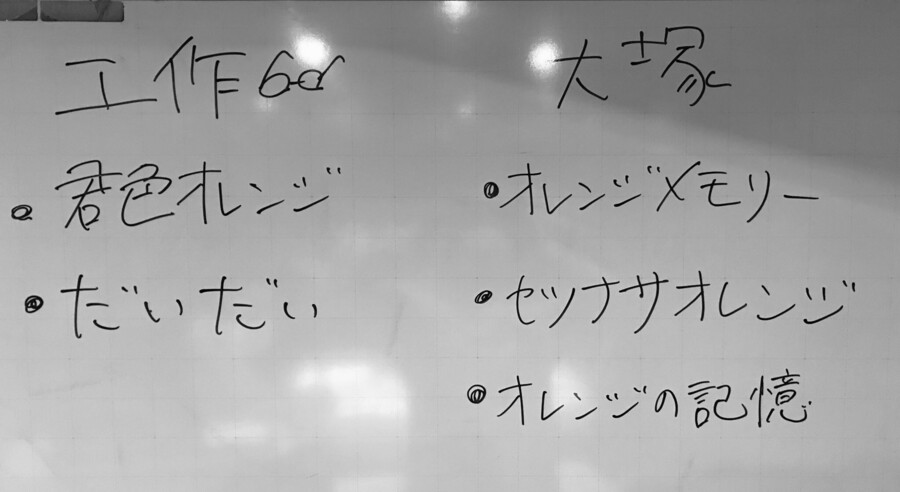 工作6α
君色オレンジ
だいだい
大塚
オレンジメモリー
セツナサオレンジ
オレンジの記憶